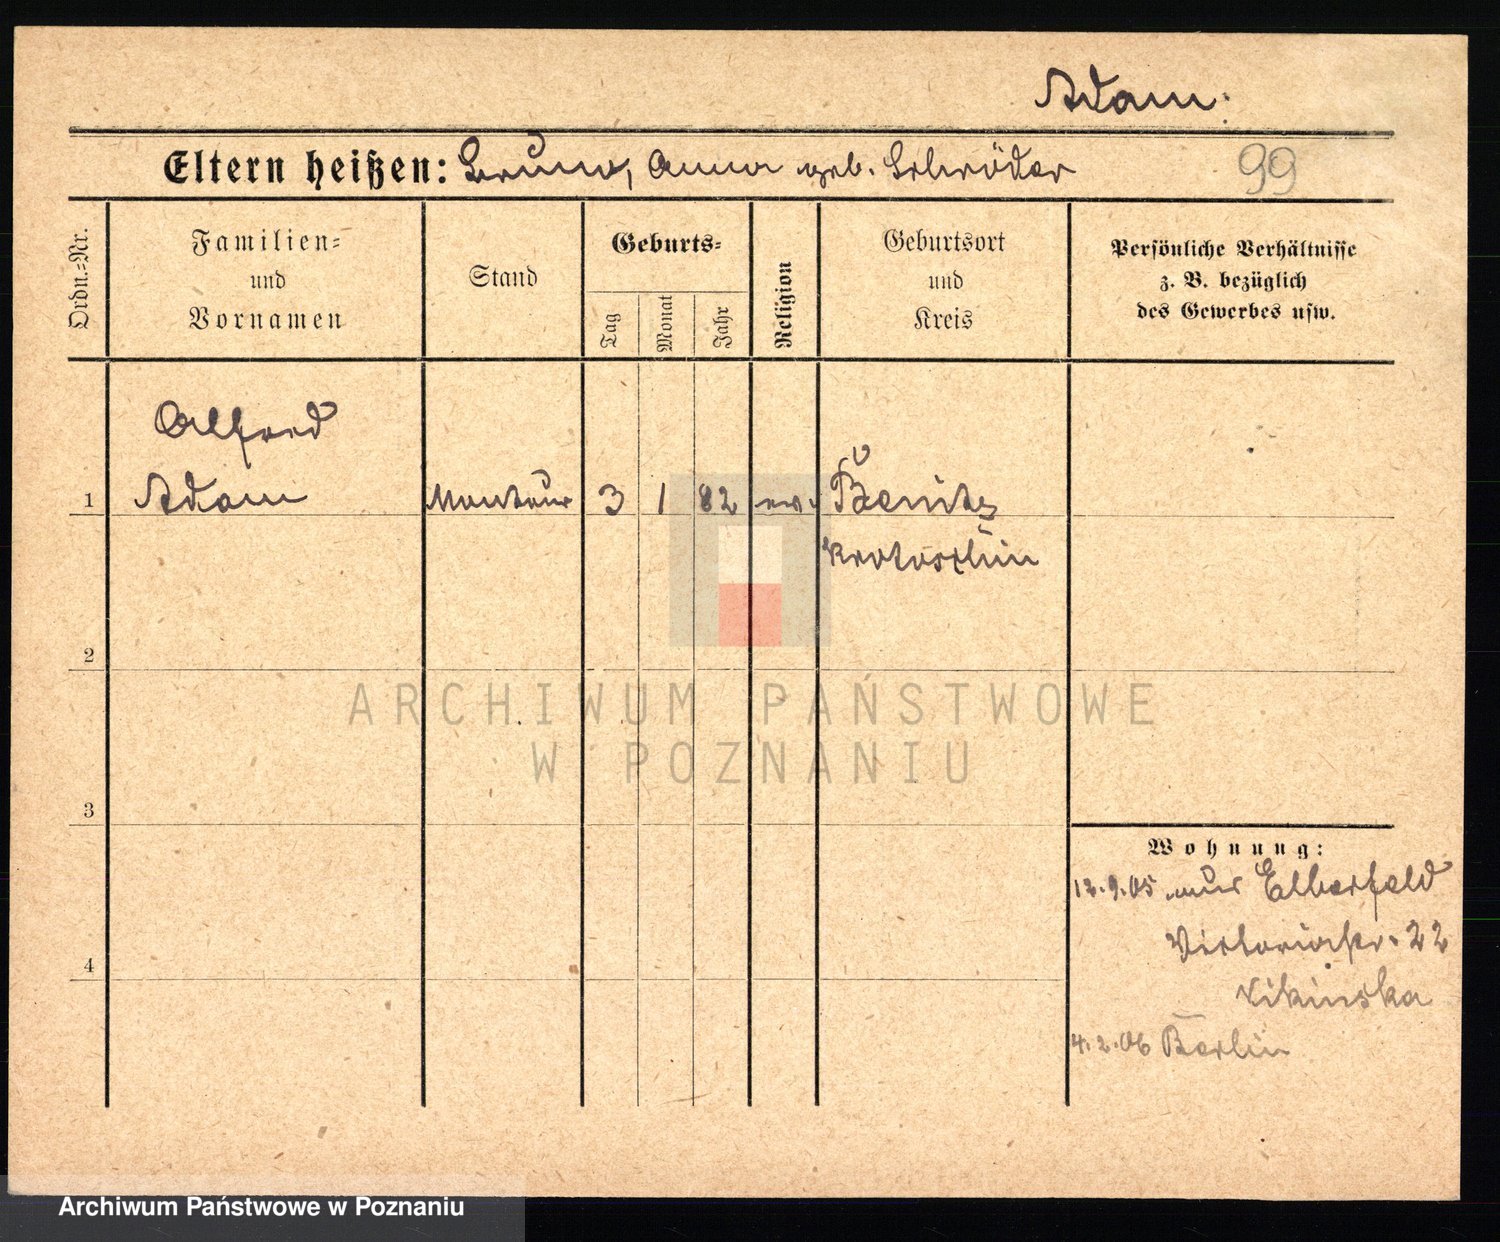 Adam.
Eltern heißen: Bruno, Anna geb. Schröder
99
Ordn.-Nr.
Familien-
und
Vornamen
Stand
Geburts-
Tag
Monat
Jahr
Religion
Geburtsort
und
Kreis
Persönliche Verhältnisse
z. B. bezüglich
des Gewerbes usw.
Alfred
1 Adam Monteur 3 1 82 ev. Benitz
Krotoschin
2
3
4
Wohnung:
12.9.05 aus Elberfeld
Viktoriastr. 22
4.2.06 Berlin
ARCHIWUM PAŃSTWOWE
W POZNANIU
Archiwum Państwowe w Poznaniu